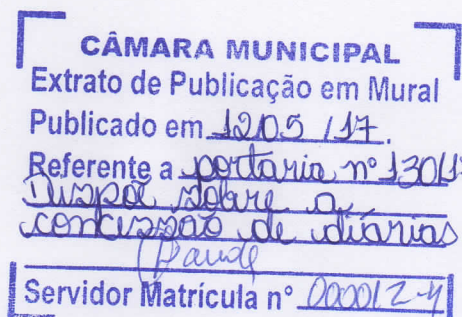 CÂMARA MUNICIPAL
Extrato de Publicação em Mural
Publicado em 12/05/17.
Referente a portaria nº 130/1
Dispõe sobre a
concessão de diárias
Servidor Matrícula nº 000012-4